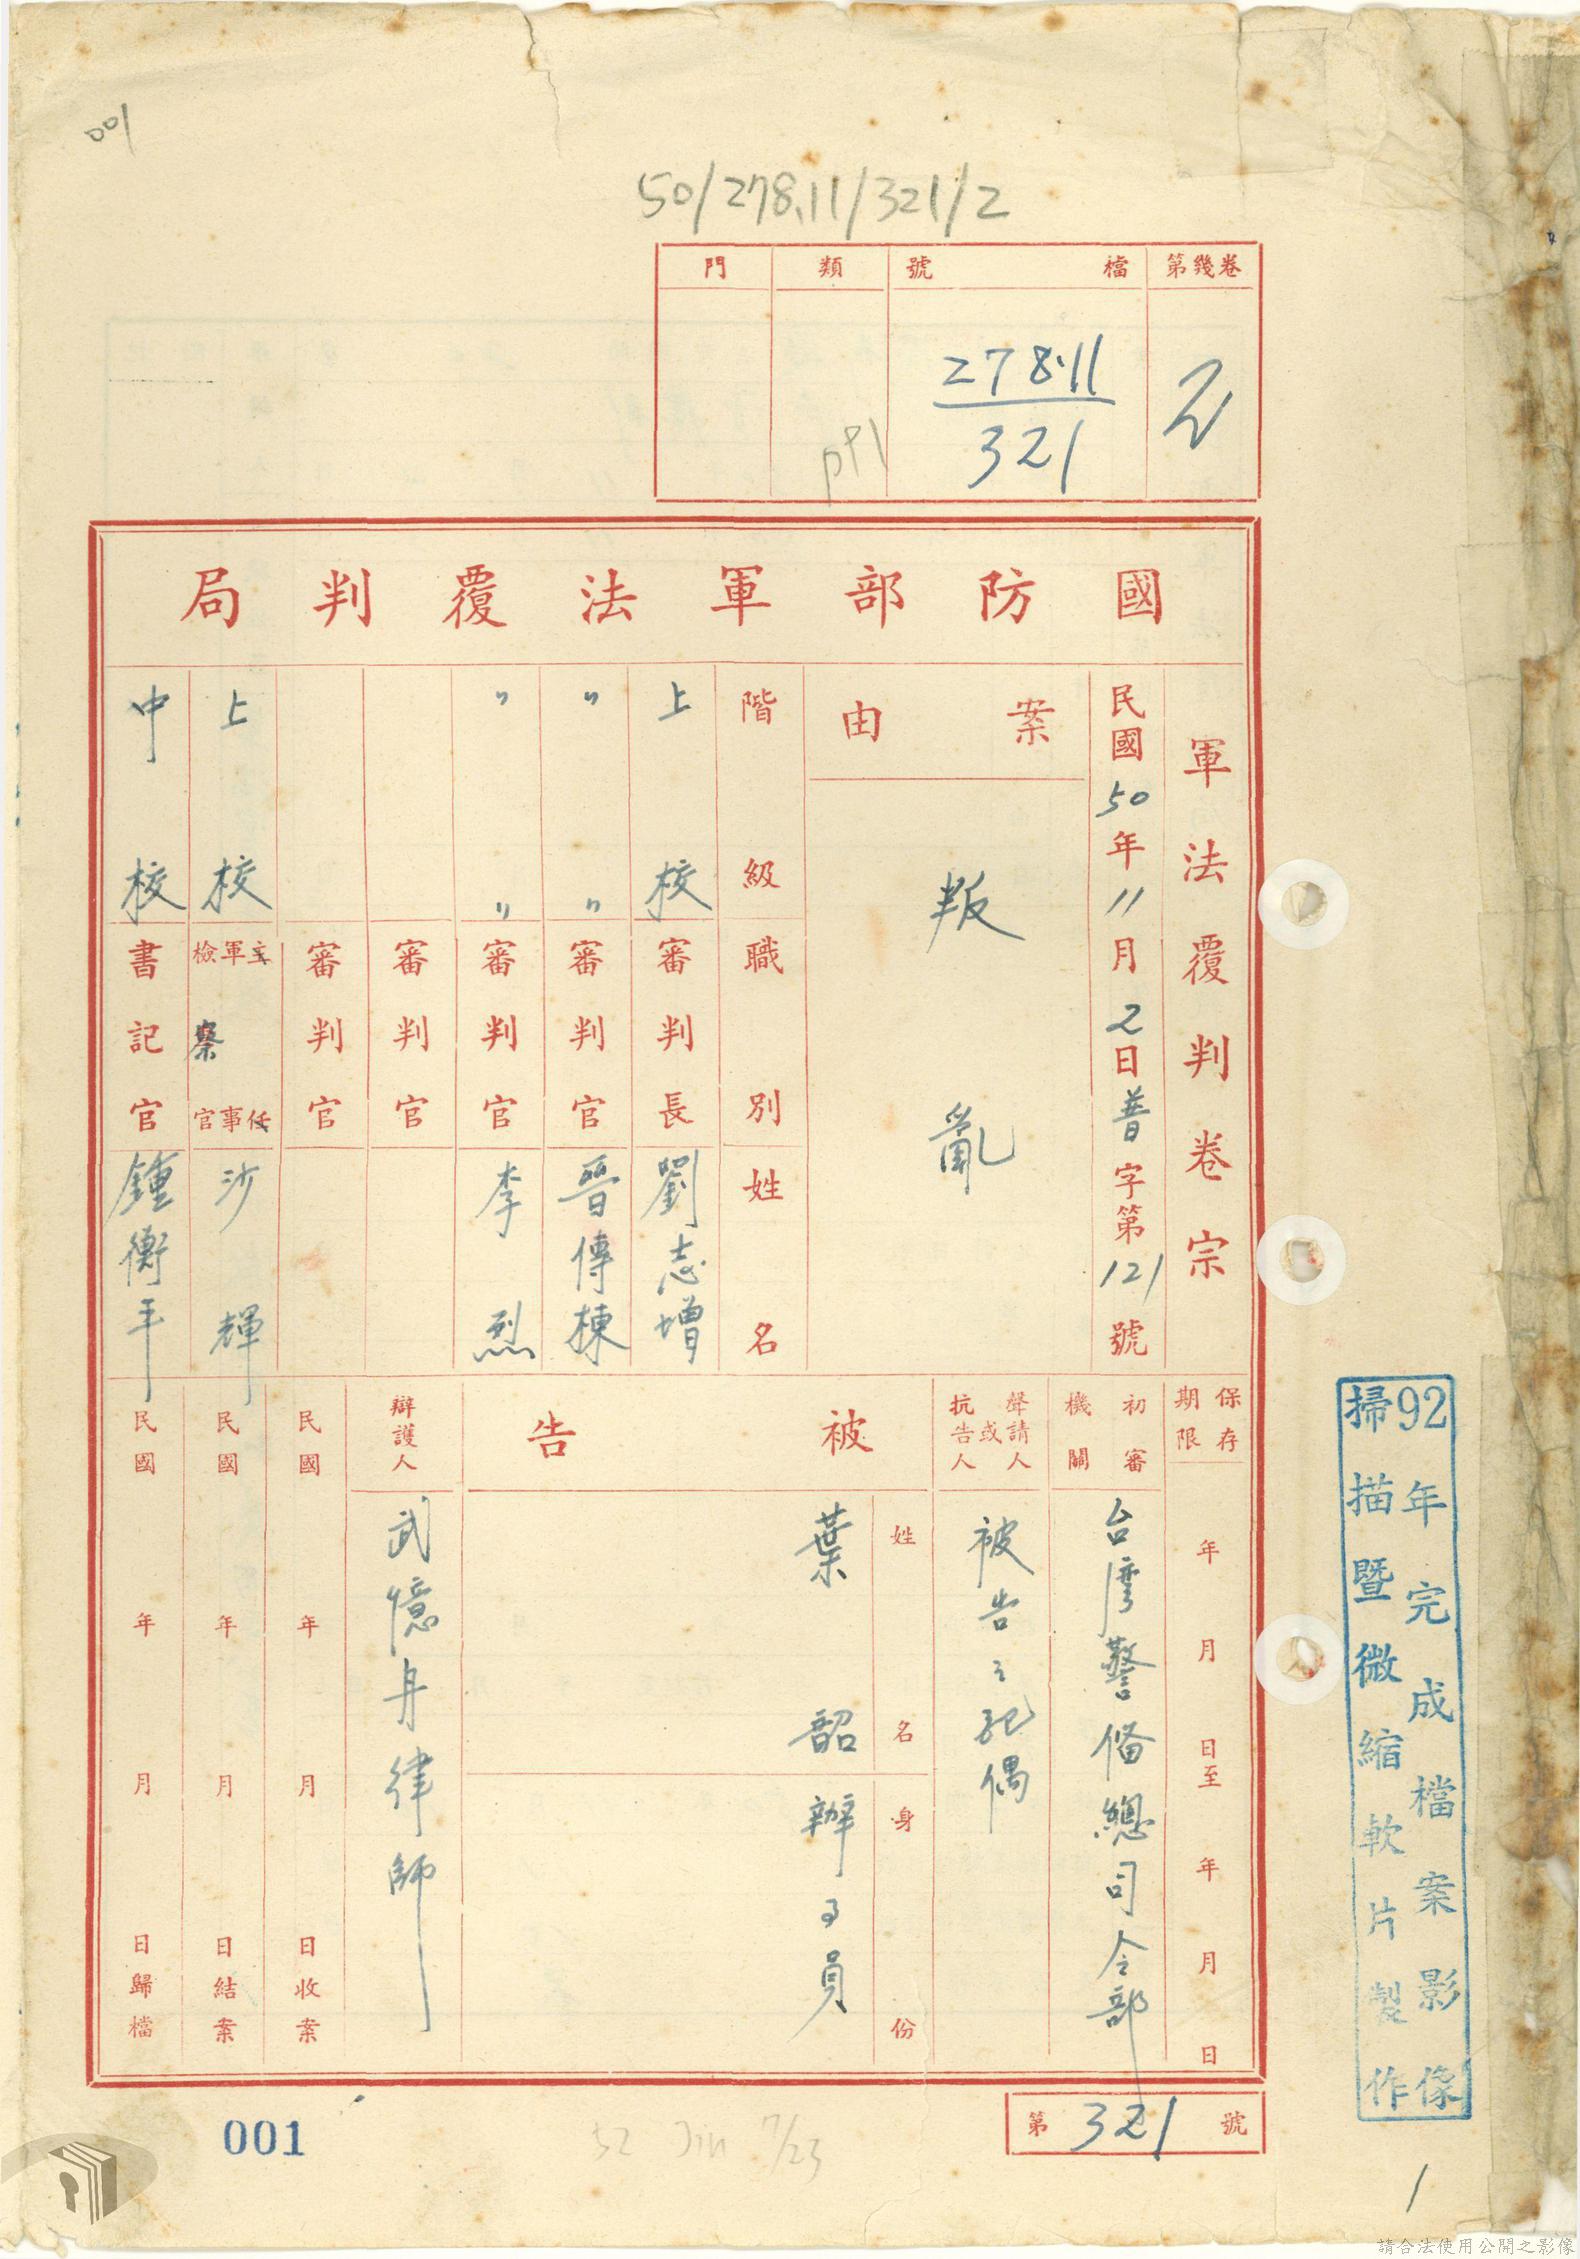 001
50/278.11/321/2
第幾卷
2
檔號
278.11
321
類
門
國防部軍法覆判局
軍法覆判卷宗
民國50年11月2日普字第121號
案由
叛亂
階級 職別 姓名
上校 審判長 劉志增
〃〃 審判官 晉傳棟
〃〃 審判官 李烈
審判官
審判官
上校 主任軍事檢察官 沙輝
中校 書記官 鍾衡平
保存期限
年月日至年月日
初審機關
台灣警備總司令部
聲請人或抗告人
被告之配偶
被告
姓名
葉韶
身份
辦事員
辯護人
武憶舟律師
民國年月日收案
民國年月日結案
民國年月日歸檔
第321號
001
92年完成檔案影像
掃描暨微縮軟片製作
1
請合法使用公開之影像